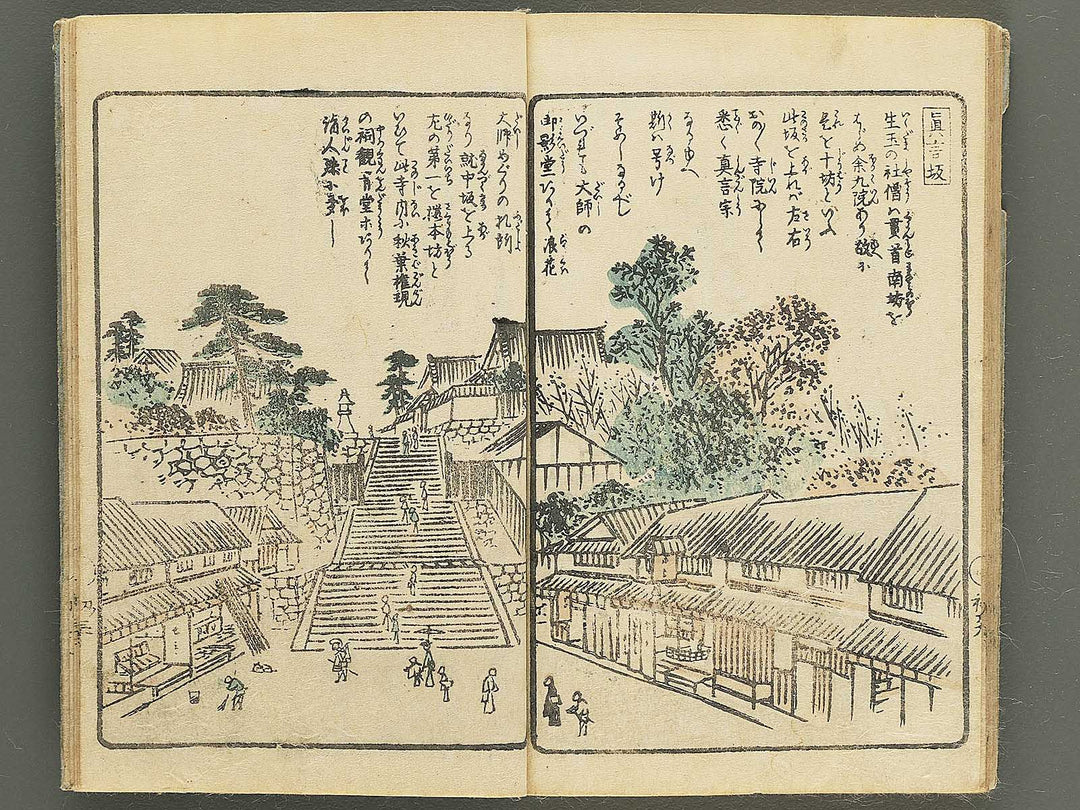 眞言坂
生玉の社僧ハ貫首南坊を
はじめ余九院あり故に
是を十坊といふ
此坂を上れバ左右
おの〱寺院ありて
悉く真言宗
なるゆへ
斯ハ号け
そめしなるべし
いづれも大師の
御影堂ありて浪花
大師めぐりの札所
なり就中坂を上る
左の第一を櫻本坊と
いひて此寺内に秋葉権現
の祠観音堂ホありて
詣人殊に多し